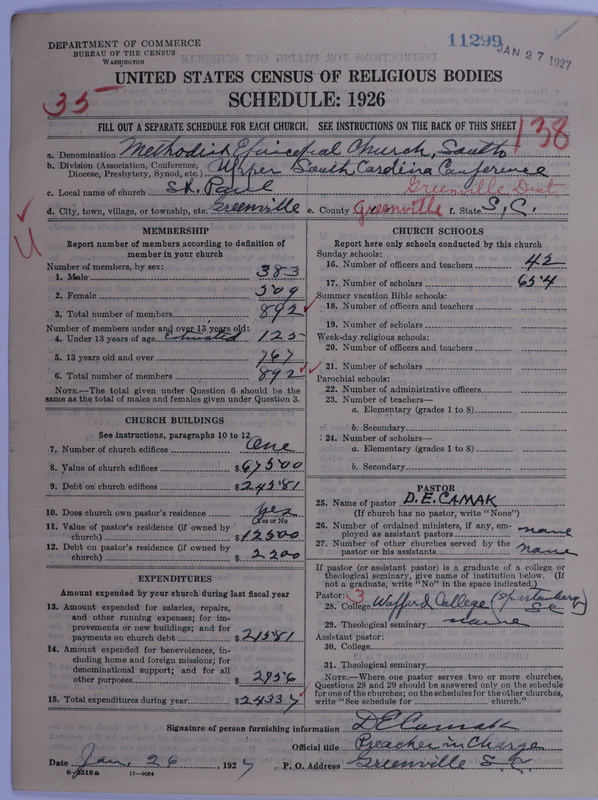 DEPARTMENT OF COMMERCE
BUREAU OF THE CENSUS
WASHINGTON
11299
JAN 27 1927
UNITED STATES CENSUS OF RELIGIOUS BODIES
SCHEDULE: 1926
35
FILL OUT A SEPARATE SCHEDULE FOR EACH CHURCH. SEE INSTRUCTIONS ON THE BACK OF THIS SHEET
138
a. Denomination Methodist Episcopal Church, South
b. Division (Association, Conference, Diocese, Presbytery, Synod, etc.) Upper South Carolina Conference
c. Local name of church St. Paul Greenville Dist
d. City, town, village, or township, etc. Greenville e. County Greenville f. State S.C.
MEMBERSHIP
Report number of members according to definition of
member in your church
Number of members, by sex:
1. Male 383
2. Female 509
3. Total number of members 892
Number of members under and over 13 years old:
4. Under 13 years of age Estimated 125
5. 13 years old and over 767
6. Total number of members 892
NOTE.—The total given under Question 6 should be the
same as the total of males and females given under Question 3.
CHURCH BUILDINGS
See instructions, paragraphs 10 to 12
7. Number of church edifices One
8. Value of church edifices $67500
9. Debt on church edifices $24581
10. Does church own pastor's residence Yes
(Yes or No)
11. Value of pastor's residence (if owned by
church) $12500
12. Debt on pastor's residence (if owned by
church) $2200
EXPENDITURES
Amount expended by your church during last fiscal year
13. Amount expended for salaries, repairs,
and other running expenses; for im-
provements or new buildings; and for
payments on church debt $21581
14. Amount expended for benevolences, in-
cluding home and foreign missions; for
denominational support; and for all
other purposes $2956
15. Total expenditures during year $24337
CHURCH SCHOOLS
Report here only schools conducted by this church
Sunday schools:
16. Number of officers and teachers 42
17. Number of scholars 654
Summer vacation Bible schools:
18. Number of officers and teachers
19. Number of scholars
Week-day religious schools:
20. Number of officers and teachers
21. Number of scholars
Parochial schools:
22. Number of administrative officers
23. Number of teachers—
a. Elementary (grades 1 to 8)
b. Secondary
24. Number of scholars—
a. Elementary (grades 1 to 8)
b. Secondary
PASTOR
25. Name of pastor D.E. CAMAK
(If church has no pastor, write "None")
26. Number of ordained ministers, if any, em-
ployed as assistant pastors none
27. Number of other churches served by the
pastor or his assistants none
If pastor (or assistant pastor) is a graduate of a college or
theological seminary, give name of institution below. (If
not a graduate, write "No" in the space indicated.)
Pastor: 3
28. College Wofford College (Spartanburg S.C.)
29. Theological seminary none
Assistant pastor:
30. College
31. Theological seminary
NOTE.—Where one pastor serves two or more churches,
Questions 28 and 29 should be answered only on the schedule
for one of the churches; on the schedules for the other churches,
write "See schedule for church."
Signature of person furnishing information D E Camak
Official title Preacher in Charge
Date Jan. 26, 1927 P. O. Address Greenville S.C.
8-5318a 11-9084